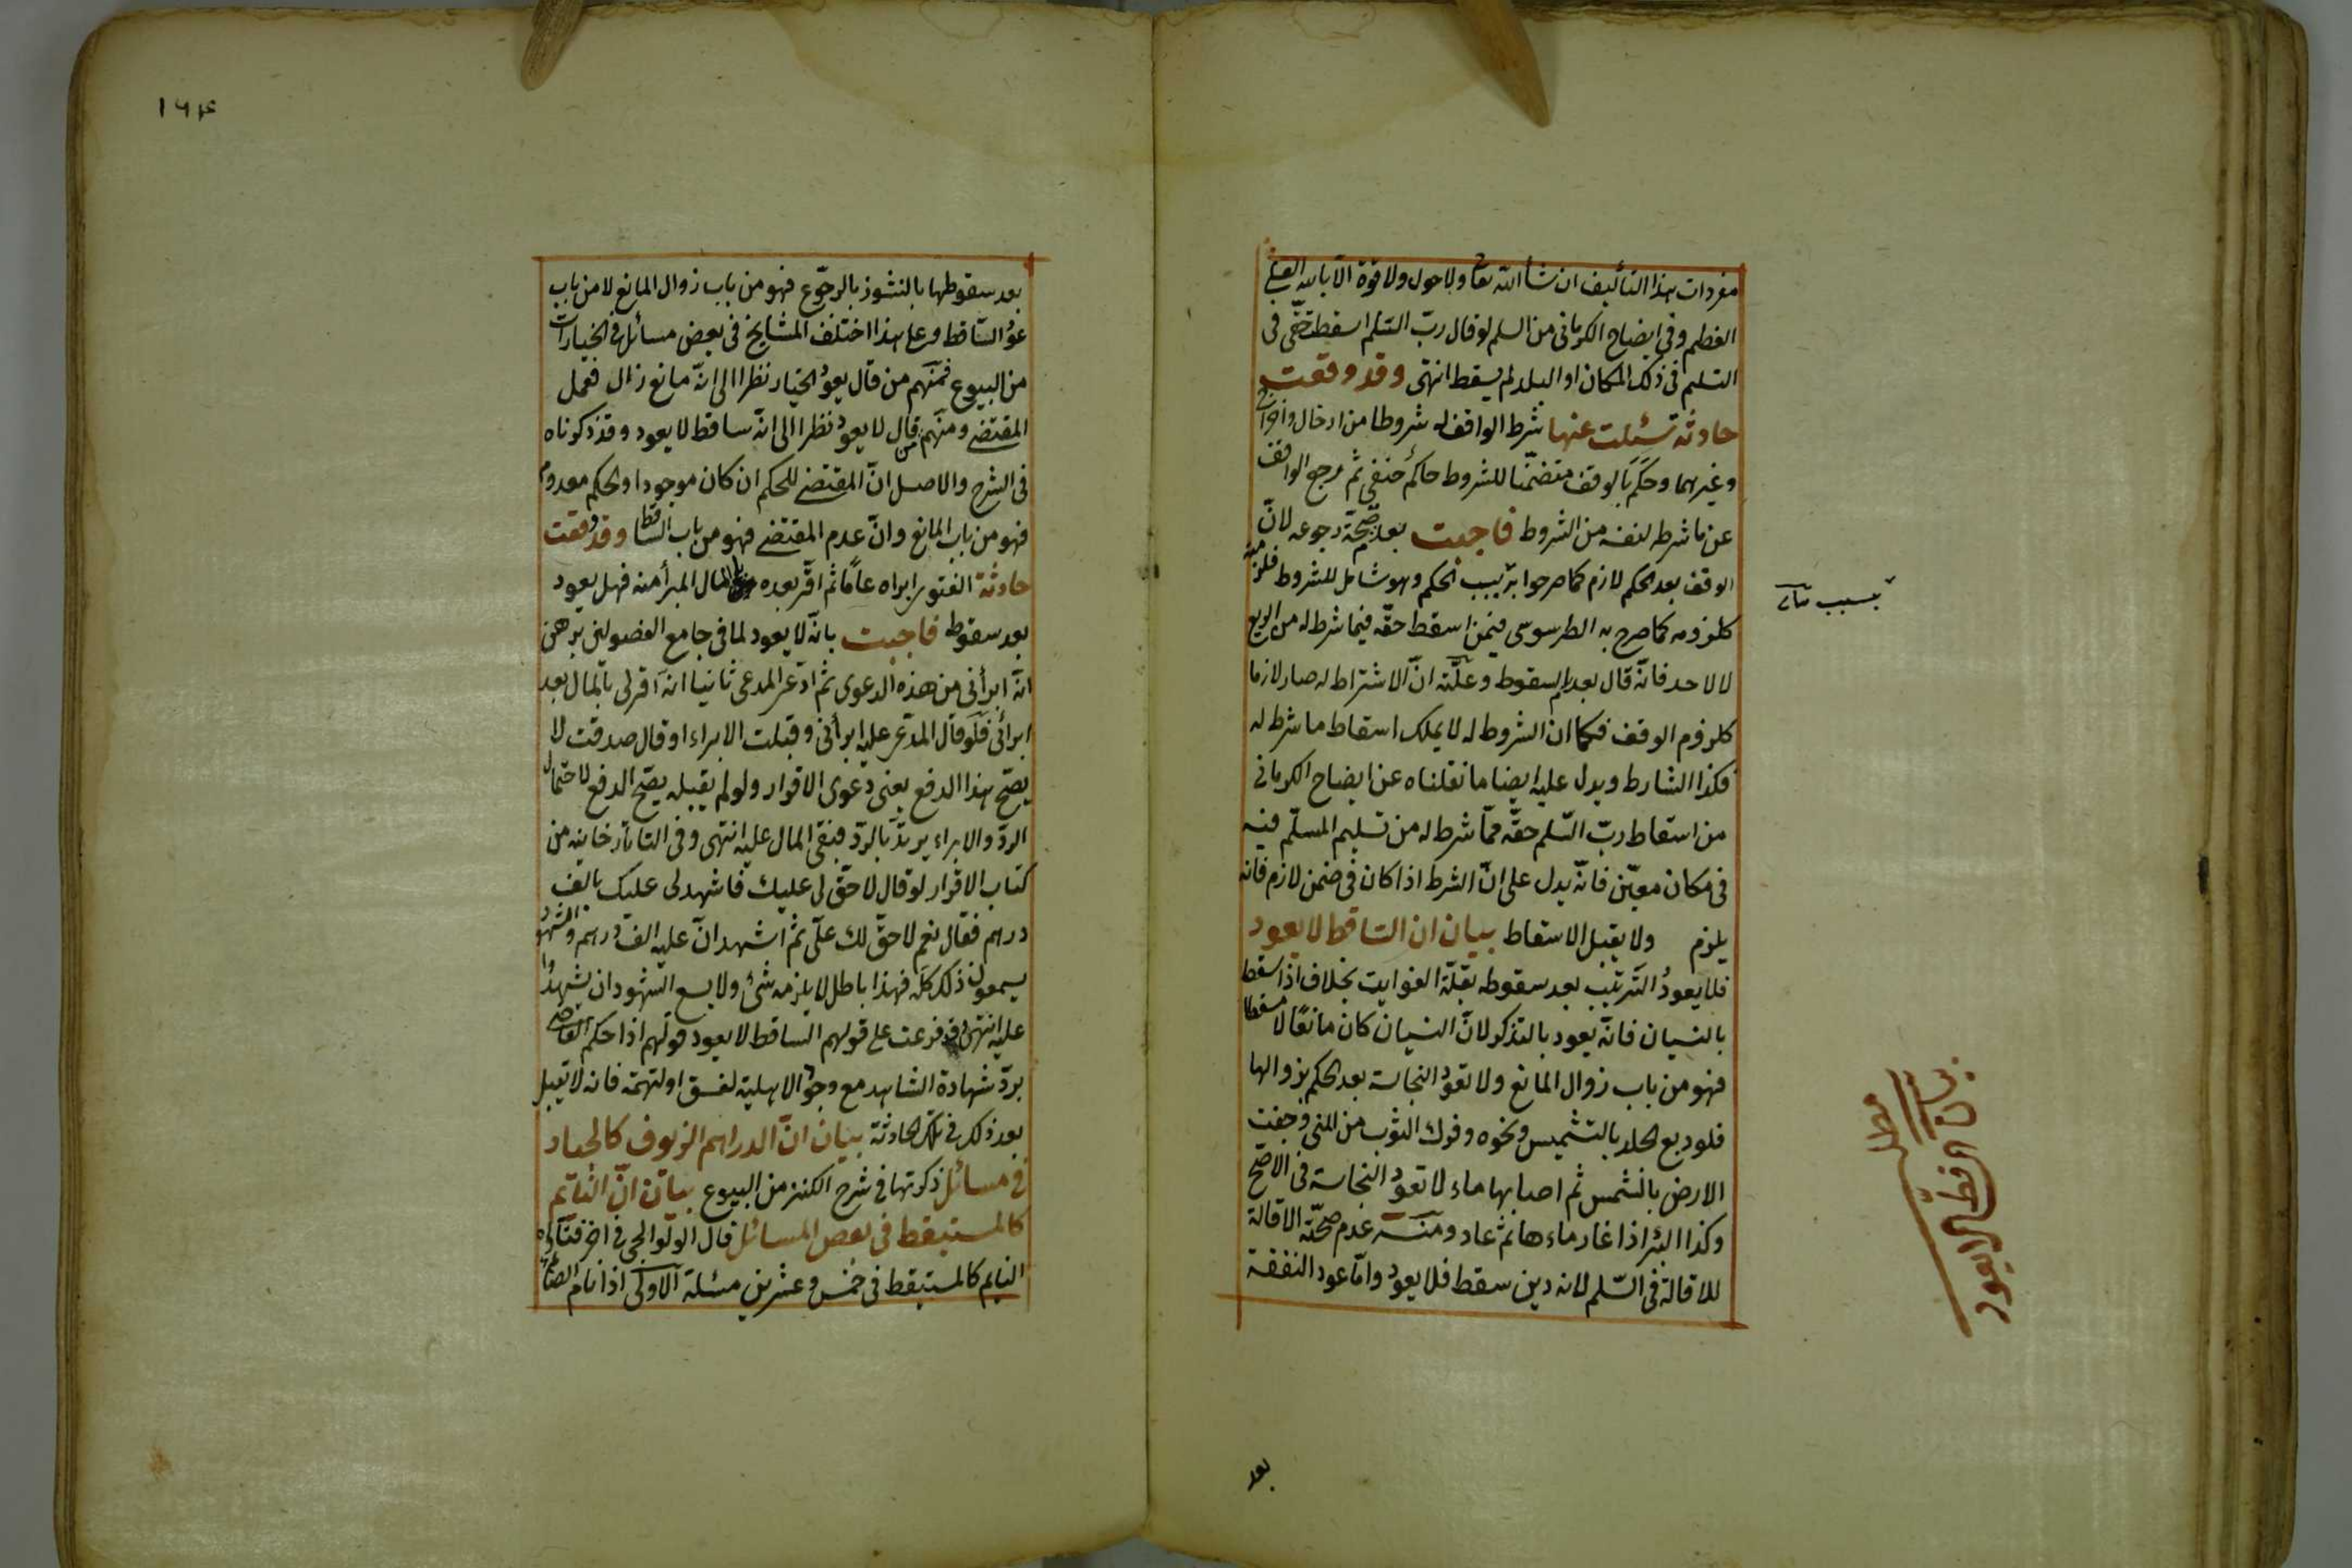 مفردات هذا التأليف ان شاء الله تعا ولا حول ولا قوة الا بالله العلى
العظيم وفى ايضاح الكرمانى من السلم لو قال ربّ السّلم اسقطت حقّى فى
التسليم فى ذلك المكان او البلد لم يسقط انتهى وقد وقعت
حادثة سئلت عنها شرط الواقف له شروطا من ادخال واخراج
وغيرهما وحكم بالوقف متضمّنا للشروط حاكم حنفى ثم رجع الواقف
عن ما شرطه لنفسه من الشروط فاجبت بعد صحّة رجوعه لانّ
الوقف بعد الحكم لازم كما صرحوا به بسبب الحكم وهو شامل للشروط فلزمته
كلزومه كما صرح به الطرسوسى فيمن اسقط حقّه فيما شرط له من الريع
لا لاحد فانّه قال بعدم السقوط وعلّته انّ الاشتراط له صار لازما
كلزوم الوقف فكما ان الشروط له لا يملك اسقاط ما شرط له
فكذا الشارط ويدل عليه ايضا ما نقلناه عن ايضاح الكرمانى
من اسقاط ربّ السّلم حقّه ممّا شرط له من تسليم المسلّم فيه
فى مكان معيّن فانّه يدل على انّ الشرط اذا كان فى ضمن لازم فانه
يلزم ولا يقبل الاسقاط بيان ان السّاقط لا يعود
فلا يعود التّرتيب بعد سقوطه بقلّة الفوايت بخلاف اذا سقط
بالنسيان فانّه يعود بالتذكر لانّ النسيان كان مانعًا لا مسقطا
فهو من باب زوال المانع ولا تعود النجاسة بعد الحكم بزوالها
فلو دبغ الجلد بالتشميس ونحوه وفرك الثوب من المنى وجفت
الارض بالشمس ثم اصابها ماء لا تعود النجاسة فى الاصحّ
وكذا البئر اذا غار ماءها ثم عاد ومنه عدم صحّة الاقالة
للاقالة فى السّلم لانه دين سقط فلا يعود وامّا عود النفقة
بسبب
مطلب
بيان ان الساقط لا يعود
بعد
١٦٤
بعد سقوطها بالنشوز بالرجوع فهو من باب زوال المانع لا من باب
عود السّاقط وعلى هذا اختلف المشايخ فى بعض مسائل فى الخيارات
من البيوع فمنهم من قال يعود الخيار نظرا الى انّه مانع زال فعمل
المقتضى ومنهم من قال لا يعود نظرا الى انّه ساقط لا يعود وقد ذكرناه
فى الشرح والاصل انّ المقتضى للحكم ان كان موجودا والحكم معدوم
فهو من باب المانع وانّ عدم المقتضى فهو من باب السّاقط وقد وقعت
حادثة الفتوى ابراه عامًّا ثم اقرّ بعده بالمال المبرأ منه فهل يعود
بعد سقوطه فاجبت بانّه لا يعود لما فى جامع الفصولين برهن
انّه ابرأنى من هذه الدعوى ثم ادّعى المدعى ثانيا انه اقر لى بالمال بعد
ابرائى فلو قال المدّعى عليه ابرأنى وقبلت الابراء او قال صدقت لا
يصحّ هذا الدفع يعنى دعوى الاقرار ولو لم يقبله يصحّ الدفع لاحتمال
الردّ والابراء يرتدّ بالردّ فبقى المال عليه انتهى وفى التاتارخانيه من
كتاب الاقرار لو قال لا حقّ لى عليك فاشهد لى عليك بالف
درهم فقال نعم لا حقّ لك علىّ ثم اشهد انّ عليه الف درهم والشهود
يسمعون ذلك كلّه فهذا باطل لا يلزمه شئ ولا يسع الشهود ان يشهدوا
عليه انتهى وفرعت على قولهم الساقط لا يعود قولهم اذا حكم القاضى
بردّ شهادة الشاهد مع وجود الاهلية لفسق او لتهمة فانه لا تقبل
بعد ذلك فى تلك الحادثة بيان انّ الدراهم الزيوف كالجياد
فى مسائل ذكرتها فى شرح الكنز من البيوع بيان انّ النّايم
كالمستيقظ فى بعض المسائل قال الولوالجى فى اخر فتاواه
النايم كالمستيقظ فى خمس وعشرين مسئلة الاولى اذا نام الصائم